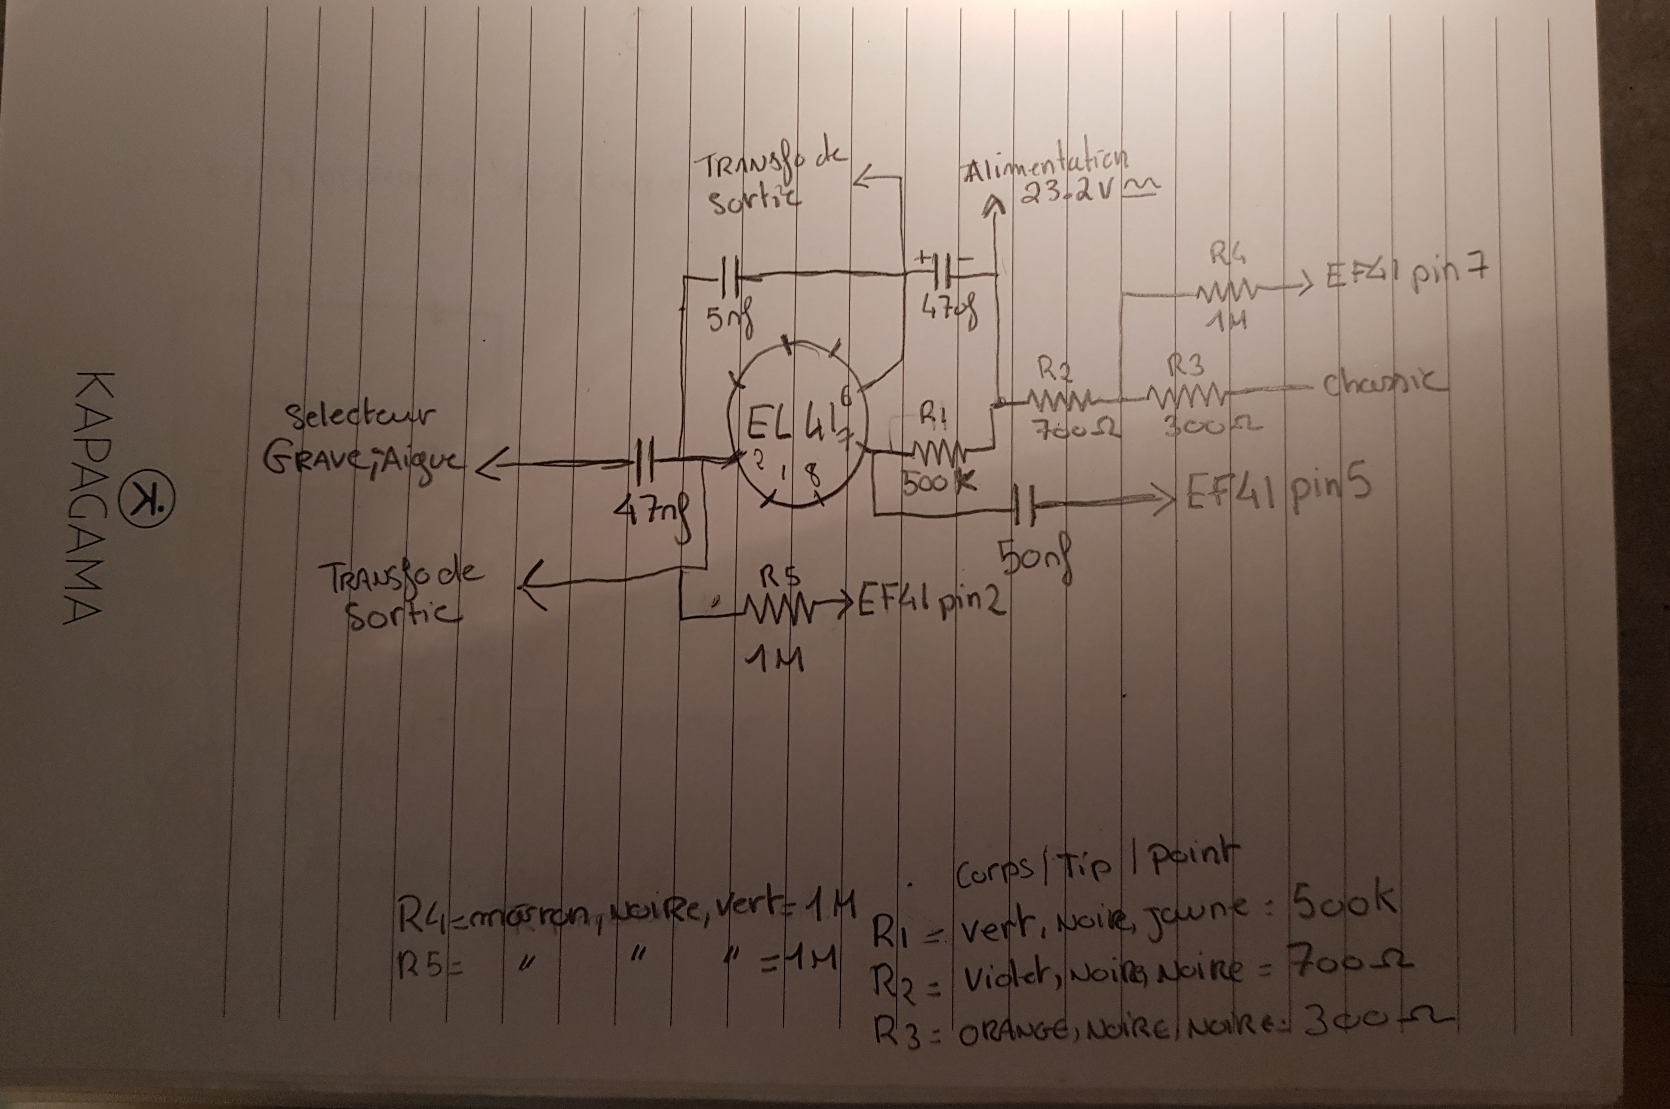 Transfo de
Sortie
Alimentation
23.2V
R4
EF41 pin 7
1M
5nf
+
-
47nf
R2
R3
chassie
700Ω
300Ω
Selecteur
GRAVE, Aigue
EL41
6
7
2
1
8
R1
500K
EF41 pin 5
47nf
50nf
Transfo de
Sortie
R5
EF41 pin 2
1M
Corps / Tip / Point
R4=marron, Noire, vert= 1M
R5= " " " =1M
R1 = vert, Noire, jaune = 500K
R2 = Violet, Noire, Noire = 700Ω
R3 = ORANGE, NOIRE, NOIRE= 300Ω
K
KAPAGAMA